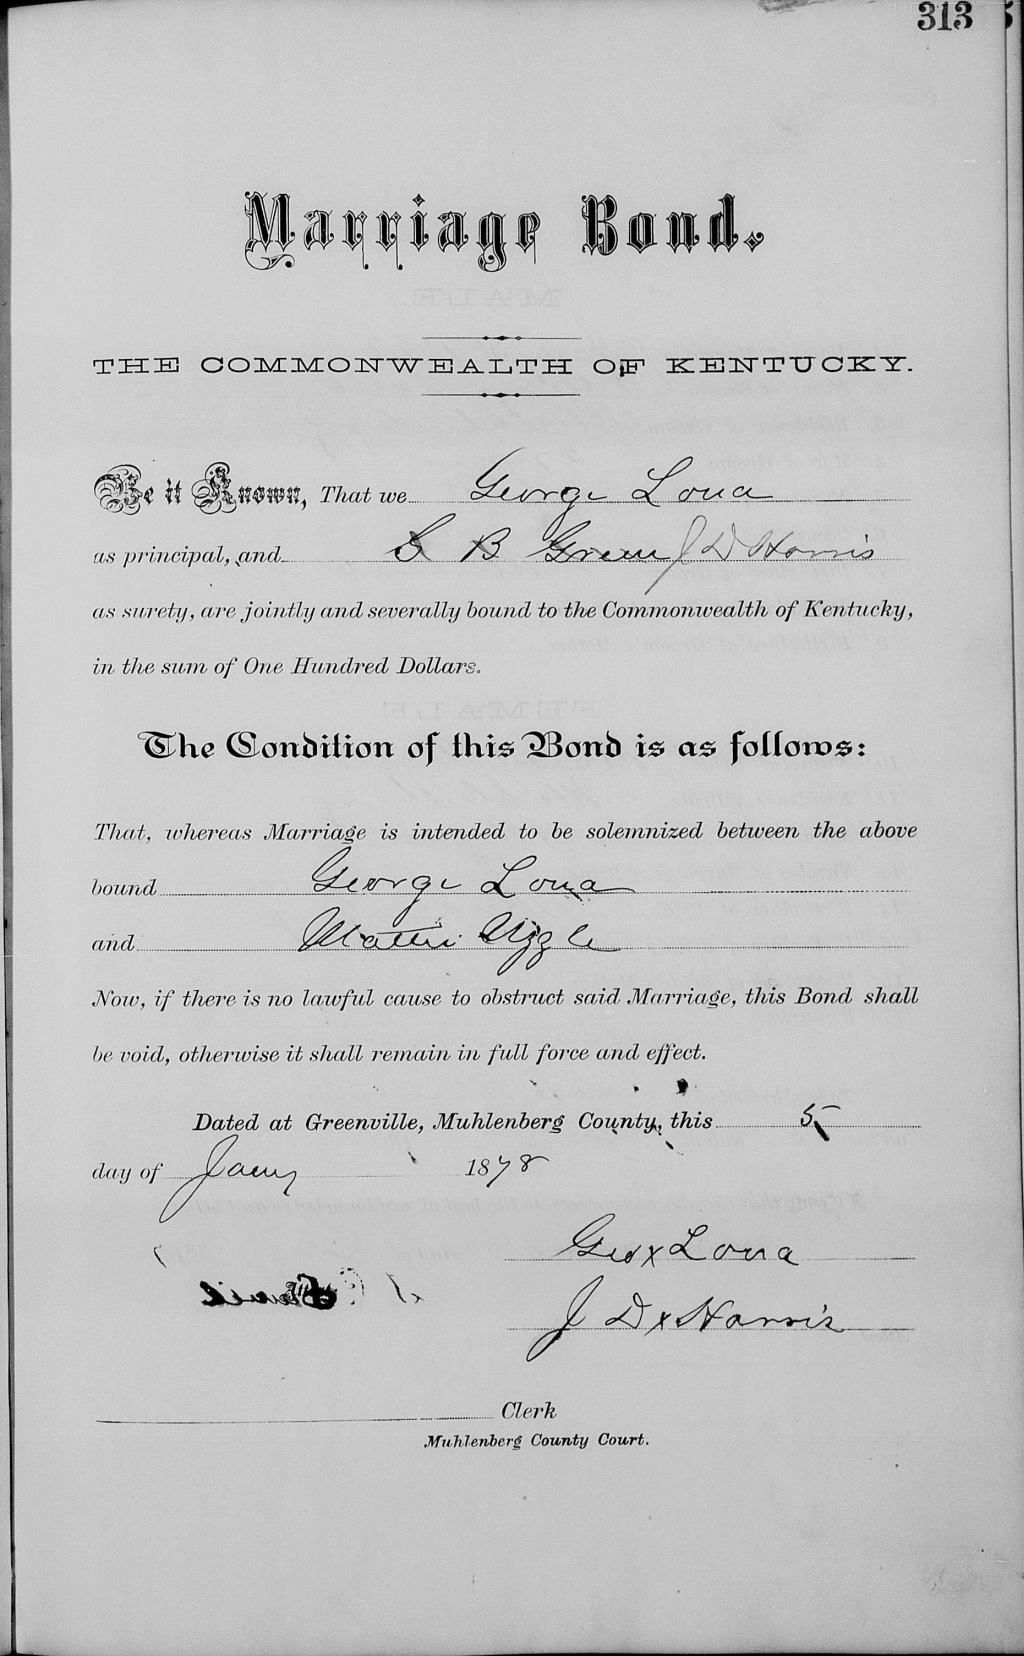 313
Marriage Bond.
THE COMMONWEALTH OF KENTUCKY.
Be it Known, That we George Lona
as principal, and C B Green J D Harris
as surety, are jointly and severally bound to the Commonwealth of Kentucky,
in the sum of One Hundred Dollars.
The Condition of this Bond is as follows:
That, whereas Marriage is intended to be solemnized between the above
bound George Lona
and Mattie Uzzle
Now, if there is no lawful cause to obstruct said Marriage, this Bond shall
be void, otherwise it shall remain in full force and effect.
Dated at Greenville, Muhlenberg County, this 5
day of Jany 1878
Geo x Lona
J D x Harris
Clerk
Muhlenberg County Court.